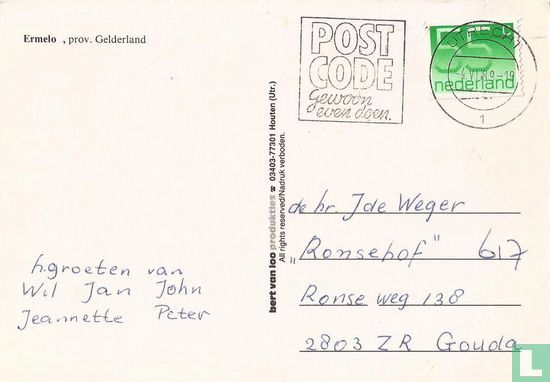 Ermelo , prov. Gelderland
POST
CODE
Gewoon
even doen.
UTRECHT
55
nederland
1
bert van loo produkties ☎ 03403-77301 Houten (Utr.)
All rights reserved/Nadruk verboden.
de hr. J de Weger
„Ronsehof" 617
Ronse weg 138
2803 ZR Gouda
h.groeten van
Wil Jan John
Jeannette Peter
L
Lastdodo